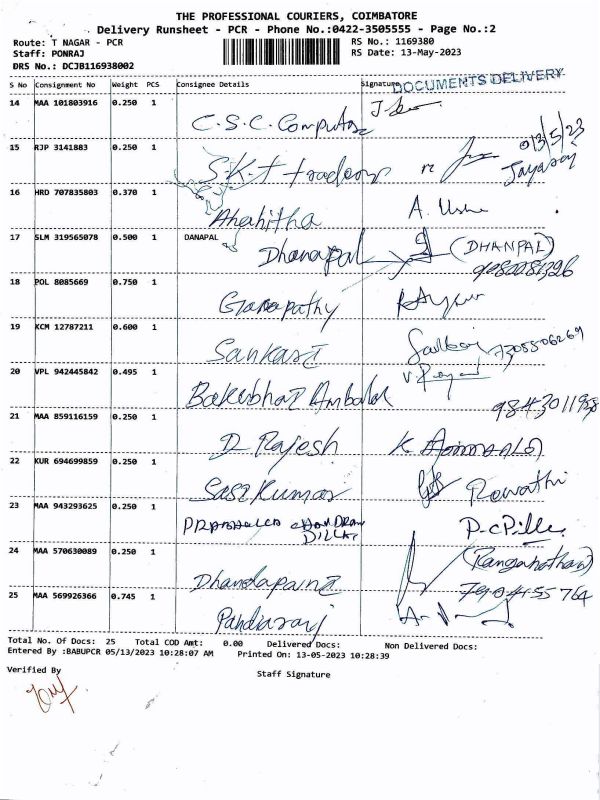 THE PROFESSIONAL COURIERS, COIMBATORE
Delivery Runsheet - PCR - Phone No.:0422-3505555 - Page No.:2
Route: T NAGAR - PCR RS No.: 1169380
Staff: PONRAJ RS Date: 13-May-2023
DRS No.: DCJB116938002
S No Consignment No Weight PCS Consignee Details Signature DOCUMENTS DELIVERY
14 MAA 101803916 0.250 1
C.S.C. Computer
15 RJP 3141883 0.250 1 13/5/23
S.K.T traders Jayaraj
16 HRD 707835803 0.370 1
A. Usha
17 SLM 319565078 0.500 1 DANAPAL
Dhanapal (DHANPAL)
9080081326
18 POL 8085669 0.750 1
Ganapathy
19 KCM 12787211 0.600 1
Sankari 7305506269
20 VPL 942445842 0.495 1
21 MAA 859116159 0.250 1
D Rajesh
22 KUR 694699859 0.250 1
Sasi Kumar Rewathi
23 MAA 943293625 0.250 1
CHANDRAN
PILLAI P.C Pille
24 MAA 570630089 0.250 1
Dhandapani (Ranganathan)
25 MAA 569926366 0.745 1
Pandiaraj
Total No. Of Docs: 25 Total COD Amt: 0.00 Delivered Docs: Non Delivered Docs:
Entered By :BABUPCR 05/13/2023 10:28:07 AM Printed On: 13-05-2023 10:28:39
Verified By Staff Signature